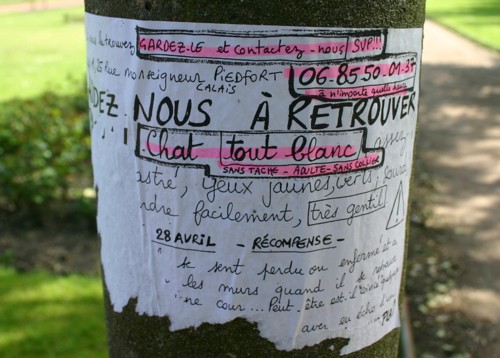 retrouvez GARDEZ-LE et contactez-nous SVP!!!
Rue monseigneur PiEDFORT 06.85.50.01.37
CALAiS à n'importe quelle heure
NOUS À RETROUVER
Chat tout blanc assez
SANS TACHE - ADULTE - SANS COLLIER
astré, yeux jaunes, verts,
ndre facilement, très gentil
28 AVRIL - RÉCOMPENSE -
se sent perdu ou enfermé et a
les murs quand il se
ne cour... Peut-être est-il
avez eu écho d'un